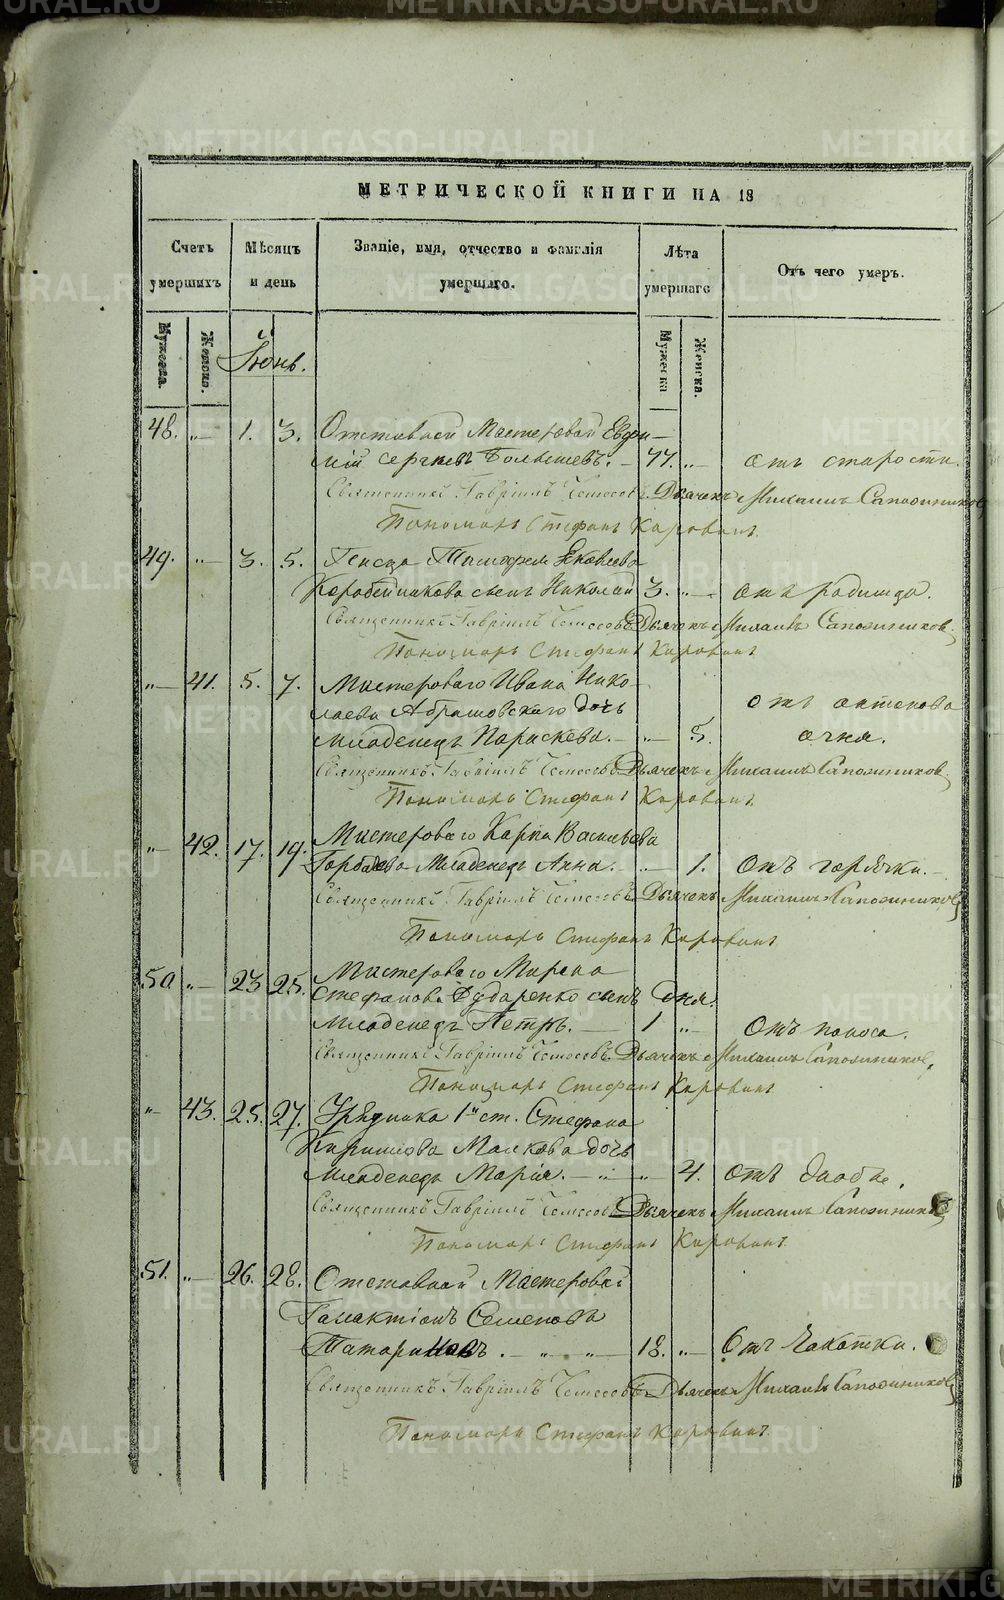 МЕТРИЧЕСКОЙ КНИГИ НА 18
Счетъ умершихъ
Мѣсяцъ и день
Званіе, имя, отчество и фамилія умершаго.
Лѣта умершаго
Отъ чего умеръ.
Мужеска.
Женска.
Мужеска
Женска.
Іюнь.
48. „ 1. 3. Отставной Мастеровой Евфи-
мій Сергѣевъ 77. „ отъ старости.
Священникъ Гавріилъ Дьячекъ Михаилъ Сапожниковъ
Пономарь Стефанъ
49. „ 3. 5. Яковлева
Коробейникова сынъ Николай 3. „ отъ родимца.
Священникъ Гавріилъ Дьячекъ Михаилъ Сапожниковъ
Пономарь Стефанъ
„ 41. 5. 7. Мастероваго Ивана Нико-
лаева Абрамовскаго дочь отъ антонова
младенецъ Параскева. „ 5. огня.
Священникъ Гавріилъ Дьячекъ Михаилъ Сапожниковъ
Пономарь Стефанъ
„ 42. 17. 19. Мастероваго Карпа Васильева
младенецъ Анна. „ 1. Отъ горячки.
Священникъ Гавріилъ Дьячекъ Михаилъ Сапожниковъ
Пономарь Стефанъ
50 „ 23 25. Мастероваго Мирона
Стефанова Дударенко сынъ Дня.
младенецъ Петръ. 1 „ Отъ поноса.
Священникъ Гавріилъ Дьячекъ Михаилъ Сапожниковъ,
Пономарь Стефанъ
„ 43. 25. 27. Урядника 1й ст. Стефана
дочь
младенецъ Марія. „ „ 4. отъ
Священникъ Гавріилъ Дьячекъ Михаилъ Сапожниковъ
Пономарь Стефанъ
51. „ 26. 28. Отставной Мастеровой
Галактіонъ Семеновъ
Татариновъ. „ „ 18. „ Отъ Чахотки.
Священникъ Гавріилъ Дьячекъ Михаилъ Сапожниковъ
Пономарь Стефанъ
METRIKI.GASO-URAL.RU